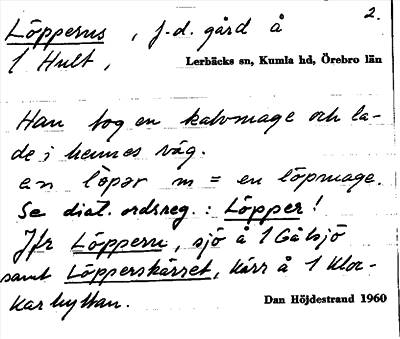 2.
Löpperus, f.d. gård å
1 Hult,
Lerbäcks sn, Kumla hd, Örebro län
Han tog en kalvmage och la-
de i hennes väg.
en löpər m = en löpmage.
Se dial. ordsreg. : Löpper!
Jfr Löppern, sjö å 1 Gålsjö
samt Löpperskärret, kärr å 1 Kloc-
karhyttan.
Dan Höjdestrand 1960